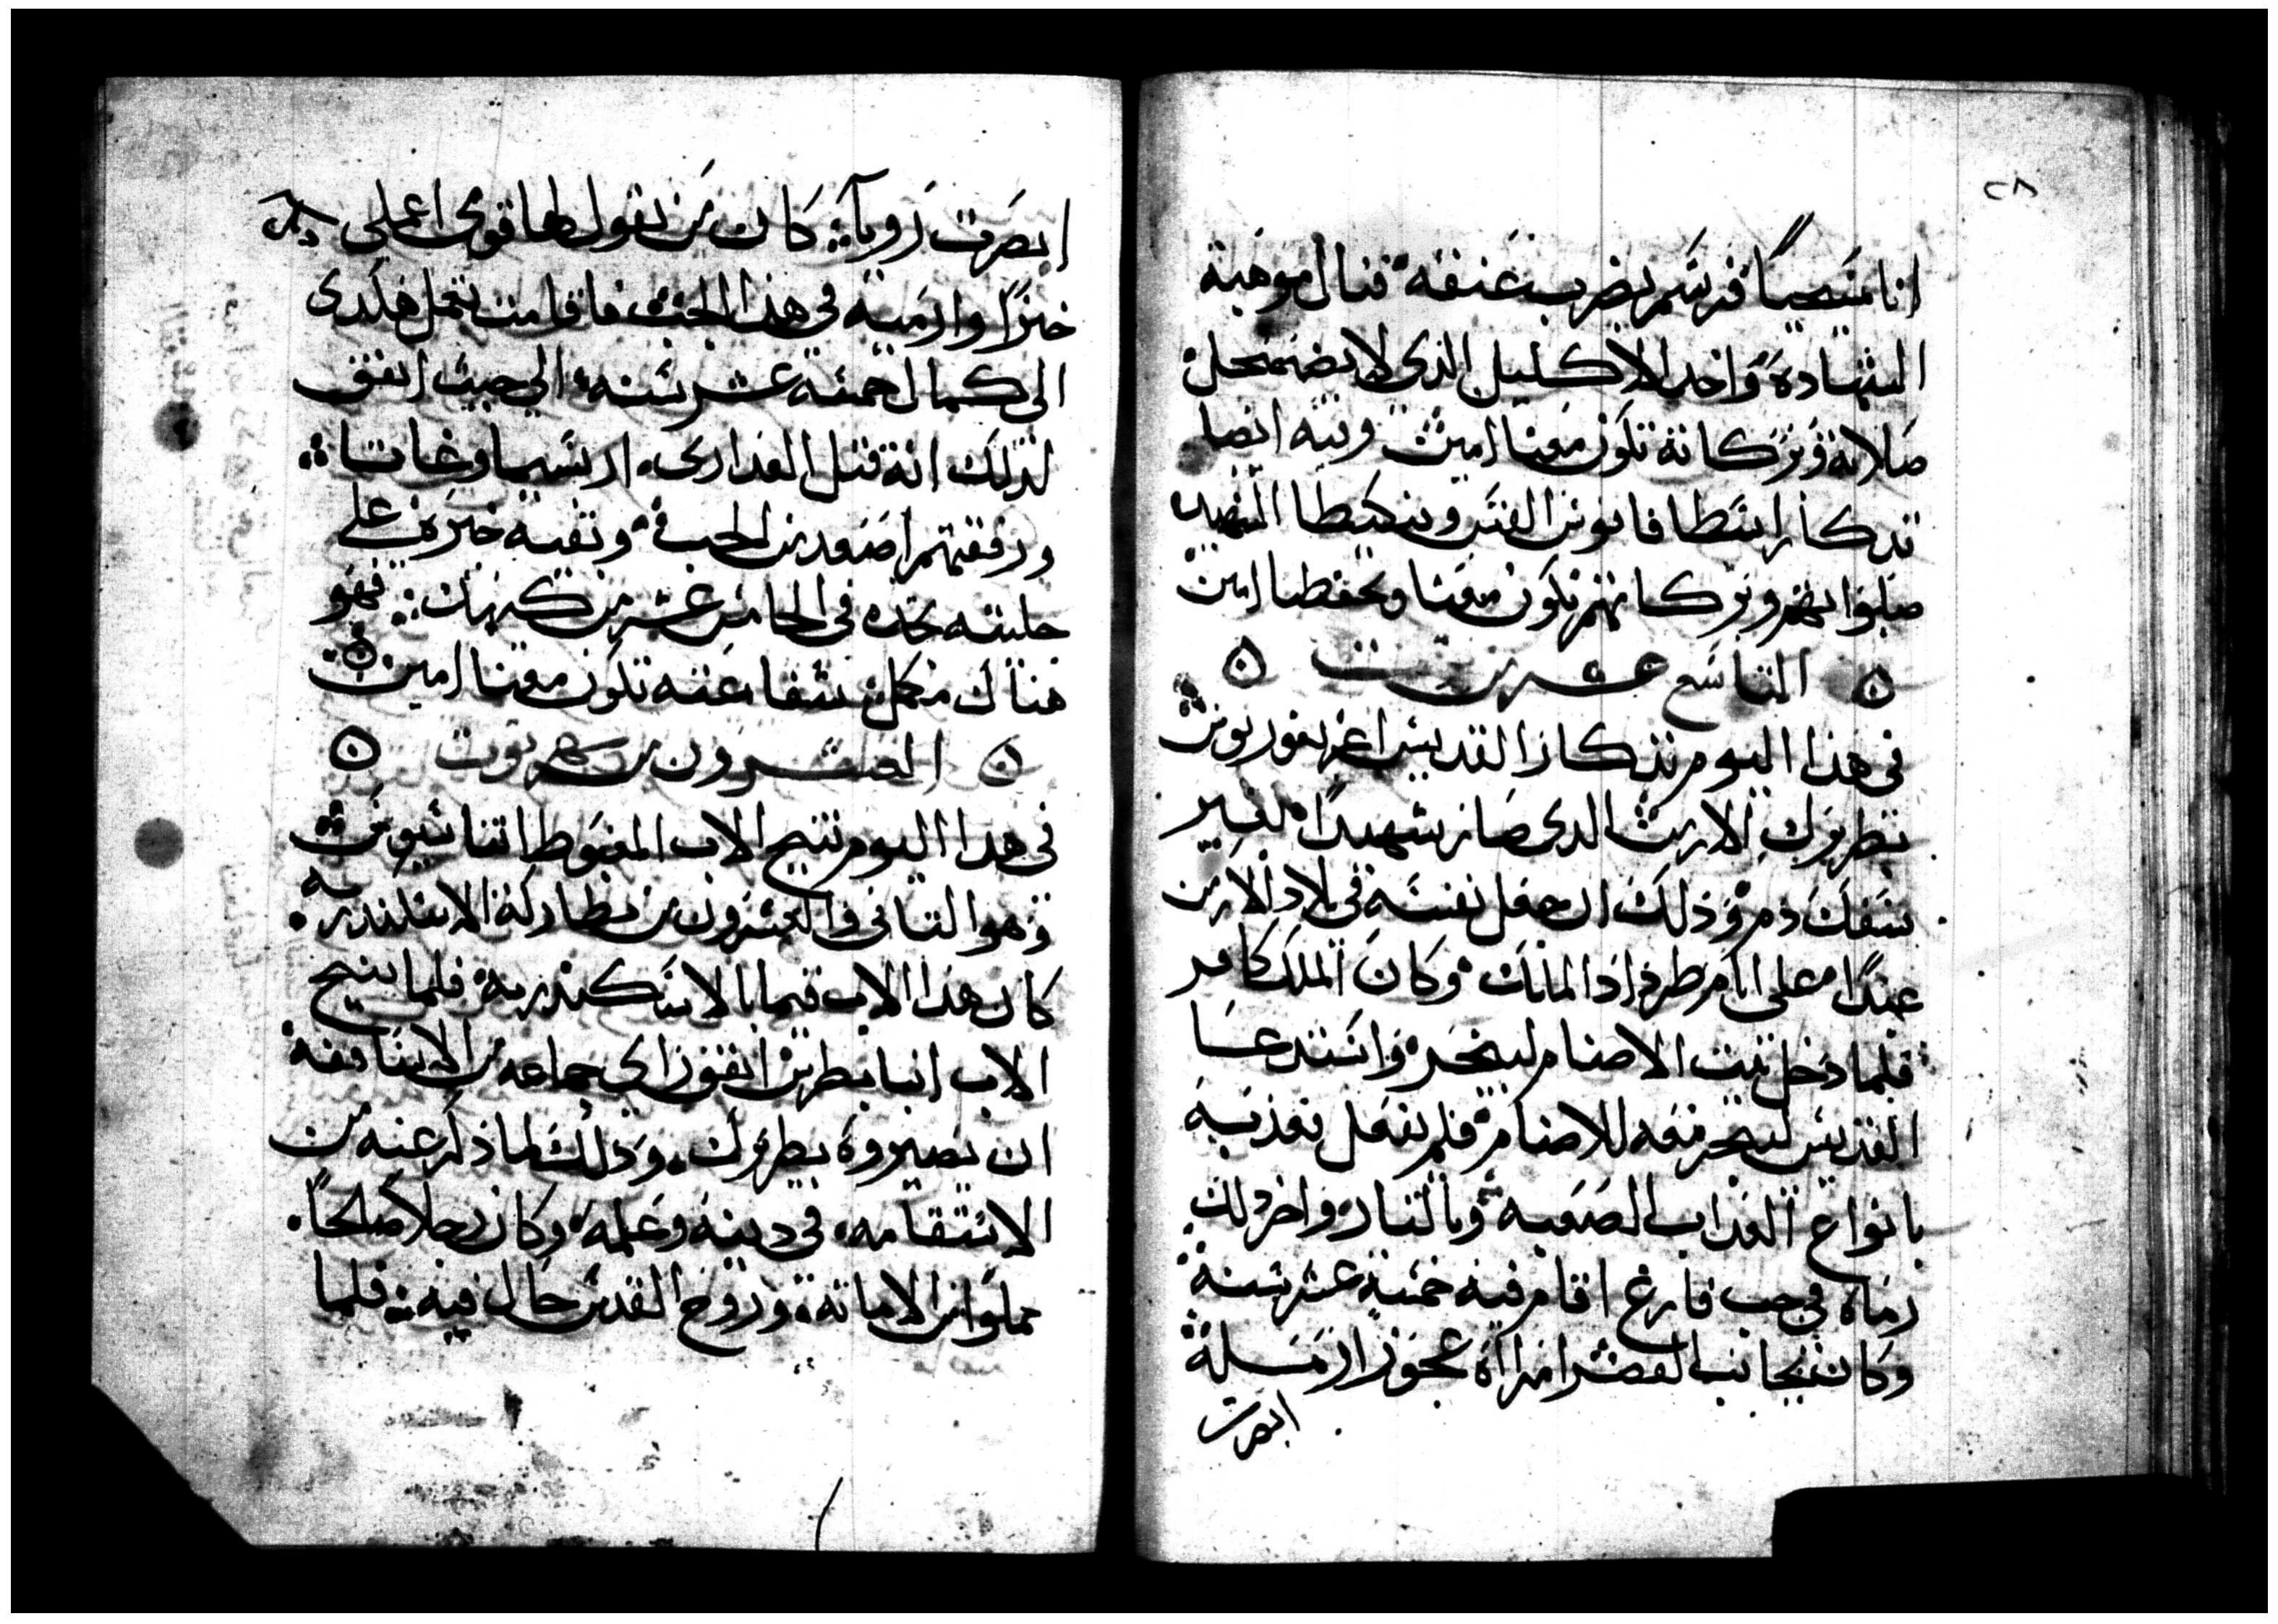 ٢٨
انا مسيحيا فرسم بضرب عنقه فنال موهبة
الشهادة واخد الاكليل الذي لا يضمحل
صلاته وبركاته تكون معنا امين وفيه ايضا
تدكار ابسطافانوس القس ونيكيطا الشهيد
صلواتهم وبركاتهم تكون معنا وتحفظنا امين
التاسع عشر من توت
في هذا اليوم تذكار القديس اغريغوريوس
بطريرك الارمن الدى صار شهيدا بغير
سفك دم وذلك ان جعل نفسه في بلاد الارمن
عبدا على ايام طرداد الملك وكان الملك كافر
فلما دخل بيت الاصنام ليبخر واستدعا
القديس ليبخر معه للاصنام فلم يفعل فعذبه
بانواع العذاب الصعبه وبالنار واخر ذلك
رماه في جب فارغ اقام فيه خمسة عشر سنة
وكان بجانب القصر امراة عجوز ارمسلة
ابصرت
ابصرت رويا كان من يقول لها قومى اعملي
خبزا وارميه في هذا الجب فاقامت تعمل هكدى
الى كمال خمسه عشر سنه الي حيث اتفق
لذلك انه قتل العدارى اربسيما وغاتا
ورفقتهم اصعد من الجب وبقيه خبره على
جليته تجده في الخامس عشر من كيهك فهو
هناك مكمل شفاعته تكون معنا امين
العشرون من شهر توت
في هدا اليوم تنيح الاب المغبوط اتناسيوس
وهو التانى والعشرون من بطاركة الاسكندريه
كان هذا الاب قيما بالاسكندرية فلما تنيح
الاب انبا بطرس اتفق راي جماعه من الاساقفة
ان يصيروه بطرك وذلك لما ذكر عنه من
الاستقامه في دينه وعلمه وكان رجلا صلحا
مملوا من الامانة وروح القدس حال فيه فلما